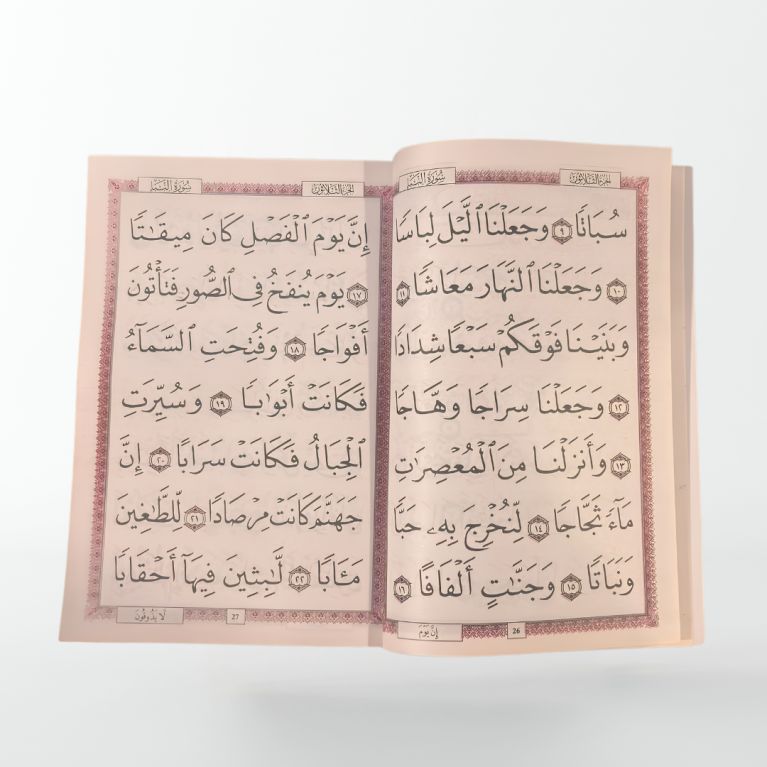 الجزء الثلاثون سورة النبإ
سُبَاتٗا ٩ وَجَعَلۡنَا ٱلَّيۡلَ لِبَاسٗا
١٠ وَجَعَلۡنَا ٱلنَّهَارَ مَعَاشٗا ١١
وَبَنَيۡنَا فَوۡقَكُمۡ سَبۡعٗا شِدَادٗا
١٢ وَجَعَلۡنَا سِرَاجٗا وَهَّاجٗا
١٣ وَأَنزَلۡنَا مِنَ ٱلۡمُعۡصِرَٰتِ
مَآءٗ ثَجَّاجٗا ١٤ لِّنُخۡرِجَ بِهِۦ حَبّٗا
وَنَبَاتٗا ١٥ وَجَنَّٰتٍ أَلۡفَافًا ١٦
26 إِنَّ يَوْمَ
الجزء الثلاثون سورة النبإ
إِنَّ يَوۡمَ ٱلۡفَصۡلِ كَانَ مِيقَٰتٗا
١٧ يَوۡمَ يُنفَخُ فِي ٱلصُّورِ فَتَأۡتُونَ
أَفۡوَاجٗا ١٨ وَفُتِحَتِ ٱلسَّمَآءُ
فَكَانَتۡ أَبۡوَٰبٗا ١٩ وَسُيِّرَتِ
ٱلۡجِبَالُ فَكَانَتۡ سَرَابًا ٢٠ إِنَّ
جَهَنَّمَ كَانَتۡ مِرۡصَادٗا ٢١ لِّلطَّٰغِينَ
مَـَٔابٗا ٢٢ لَّٰبِثِينَ فِيهَآ أَحۡقَابٗا
27 لَا يَذُوقُونَ